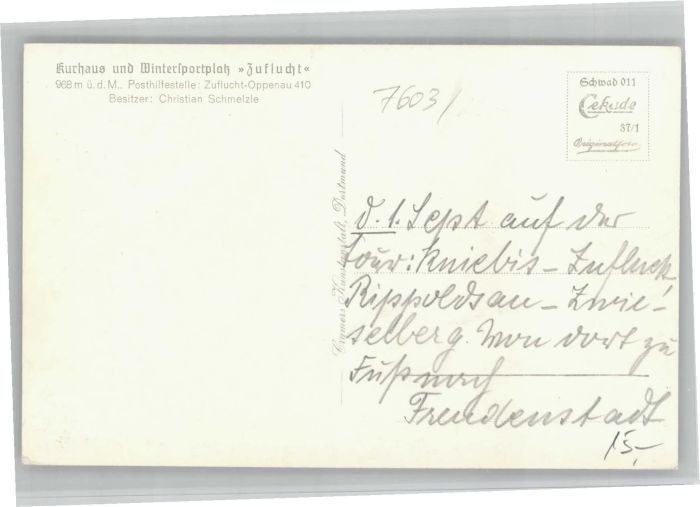 Kurhaus und Wintersportplatz »Zuflucht«
968 m ü. d. M.. Posthilfestelle: Zuflucht-Oppenau 410
Besitzer: Christian Schmelzle
7603/
Schwab 011
Cekade
37/1
Originalfoto
Cramers Kunstanstalt, Dortmund
d. 1. Sept auf der
Tour: Kniebis – Zuflucht,
Rippoldsau – Zwie-
selberg. Von dort zu
Fuß nach
Freudenstadt
15,-